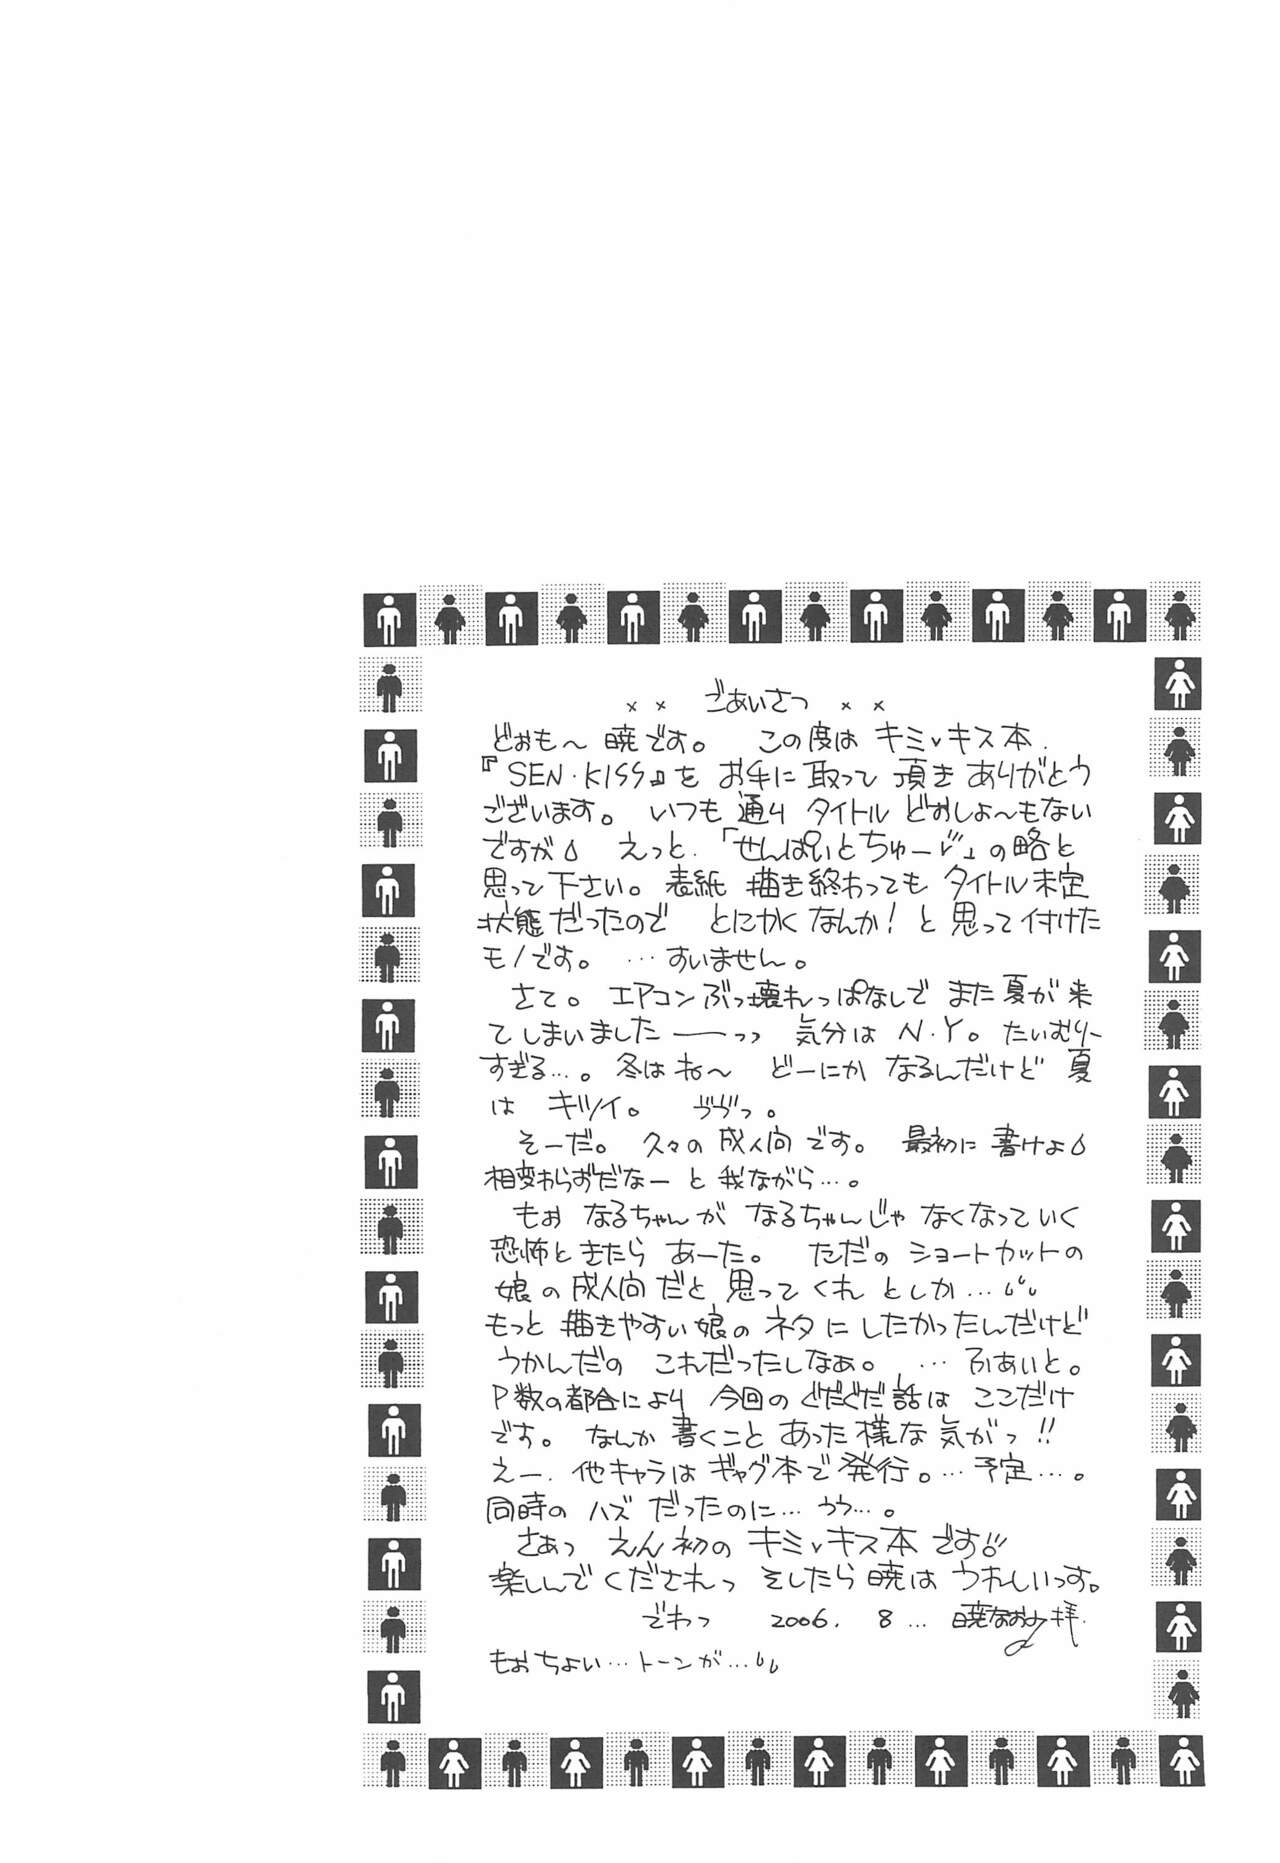 ×× ごあいさつ ××
どぉも〜 暁です。 この度は キミ♥キス本.
『SEN・KISS』を お手に取って頂き ありがとう
ございます。 いつも通り タイトル どおしょ〜もない
ですが えっと.「せんぱいとちゅー♥」の略と
思って下さい。 表紙 描き終わっても タイトル未定
状態だったので とにかくなんか! と思って付けた
モノです。 …すいません。
さて。 エアコンぶっ壊れっぱなしで また夏が来
てしまいました――っっ 気分は N.Y。 たいむりー
すぎる…。 冬はね〜 どーにか なるんだけど 夏
は キツイ。 ゔゔっ。
そーだ。 久々の成人向です。 最初に書けよ
相変わらずだなー と 我ながら…。
もぉ なるちゃんが なるちゃんじゃ なくなっていく
恐怖ときたら あーた。 ただの ショートカットの
娘の成人向だと 思ってくれ としか…
もっと描きやすい娘のネタに したかったんだけど
うかんだの これだったしなぁ。 …ふぁいと。
P数の都合により 今回のぐだぐだ話は ここだけ
です。 なんか書くこと あった様な気がっ!!
えー. 他キャラは ギャグ本で発行。…予定…。
同時のハズだったのに… うう…。
さぁっ えん初の キミ♥キス本です!!
楽しんでくだされっ そしたら 暁は うれしいっす。
でわっ 2006. 8… 暁なおみ 拝.
もぉちょい…トーンが…